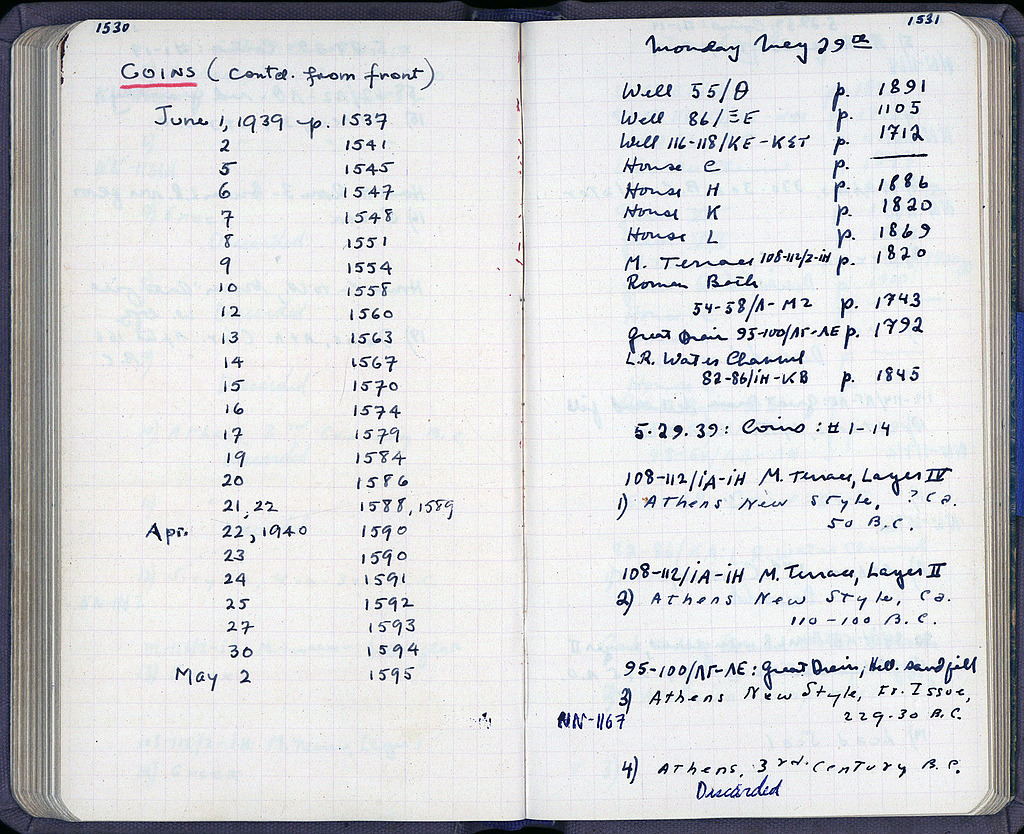 1530
COINS (contd. from front)
June 1, 1939 p. 1537
2 1541
5 1545
6 1547
7 1548
8 1551
9 1554
10 1558
12 1560
13 1563
14 1567
15 1570
16 1574
17 1579
19 1584
20 1586
21, 22 1588, 1589
Apr. 22, 1940 1590
23 1590
24 1591
25 1592
27 1593
30 1594
May 2 1595
1531
Monday May 29th
Well 55/Θ p. 1891
Well 86/ΞE p. 1105
Well 116-118/KE-KST p. 1712
House C p. ——
House H p. 1886
House K p. 1820
House L p. 1869
M. Terrace 108-112/Z-iH p. 1820
Roman Bath
54-58/Λ-MZ p. 1743
Great Drain 95-100/ΛΓ-ΛE p. 1792
L.R. Water Channel
82-86/iH-KB p. 1845
5.29.39: Coins: #1-14
108-112/iA-iH M. Terrace, Layer IV
1) Athens New Style, ? Ca.
50 B.C.
108-112/iA-iH M. Terrace, Layer II
2) Athens New Style, Ca.
110-100 B.C.
95-100/ΛΓ-ΛE: Great Drain, Hell. sand fill
3) Athens New Style, Fr. Issue,
NN-1167 229-30 B.C.
4) Athens, 3rd. Century B.C.
Discarded